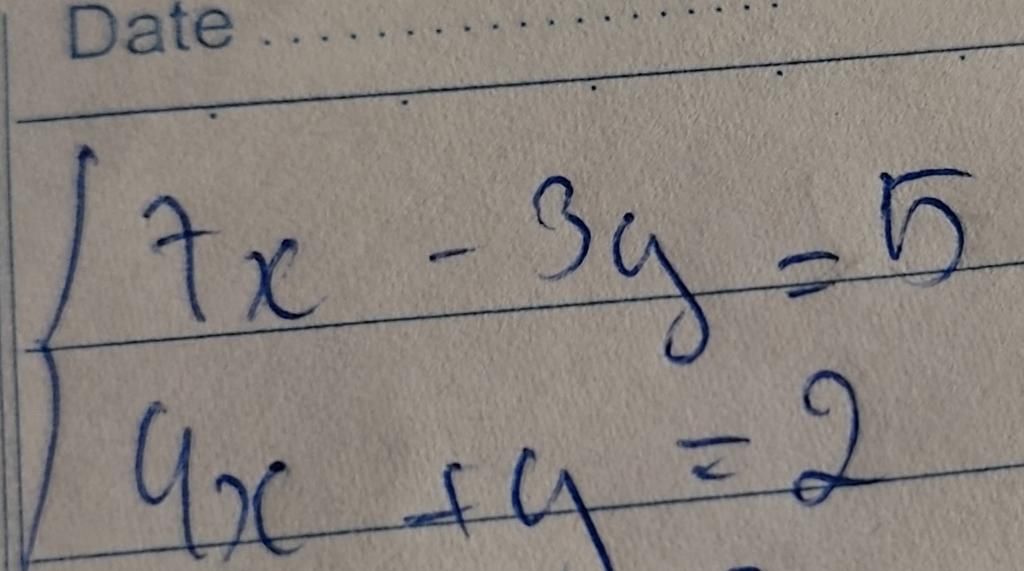 Date ....................
7x - 3y = 5
4x + y = 2